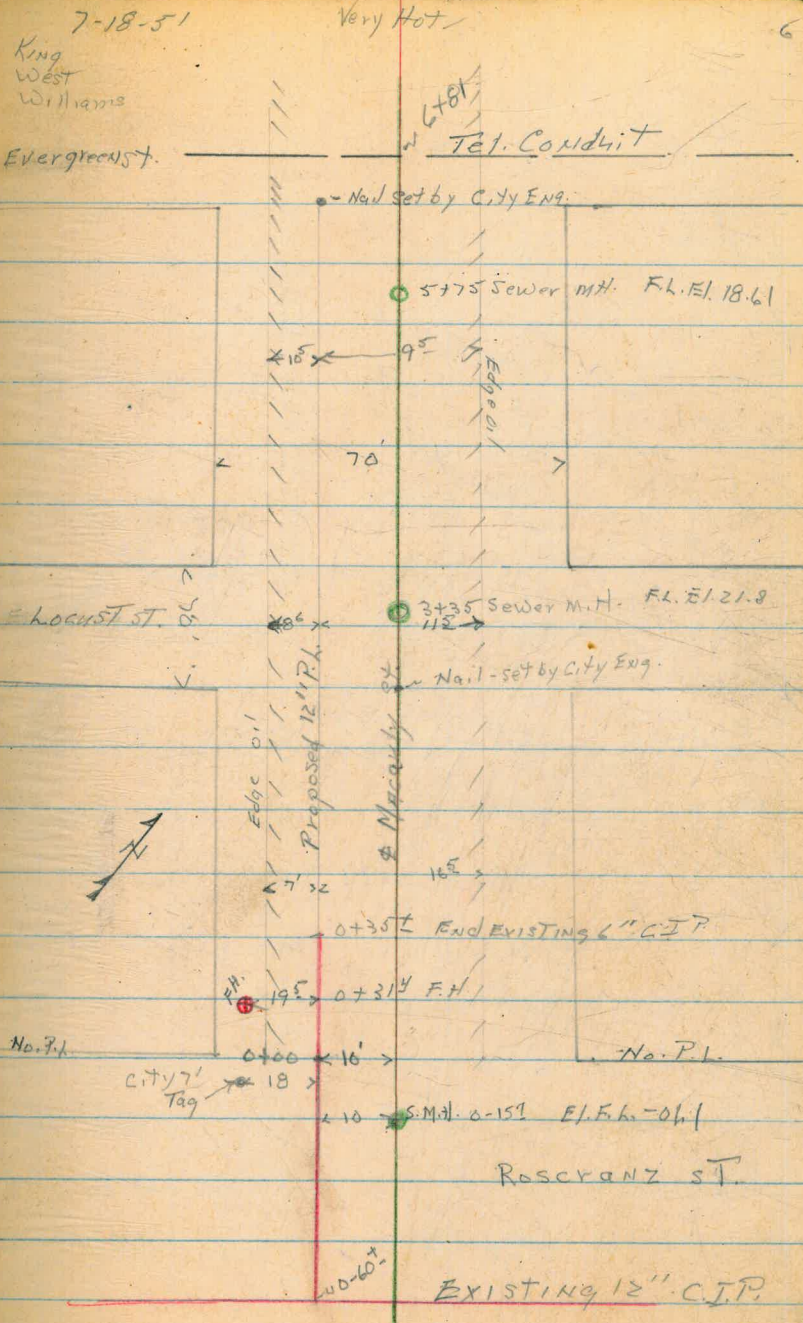 7-18-51
Very Hot
6
King
West
Williams
6+81
Evergreen St.
Tel. Conduit
Nail set by City Eng.
5+75 Sewer M.H. F.L. El. 18.61
10⁵
9⁵
Edge oil
70'
3+35 Sewer M.H. F.L. El. 21.8
Locust St.
8⁶
11⁵
Nail - set by City Eng.
Edge oil
Proposed 12" P.L.
N
16⁵
7'
0+35± End Existing 6" C.I.P.
F.H.
19⁵
0+31⁴ F.H
No. P.L.
0+00
10'
No. P.L.
City 7'
Tag
18
10
S.M.H. 0-15⁹ El. F.L. -01.1
Roscranz St.
0-60±
Existing 12" C.I.P.